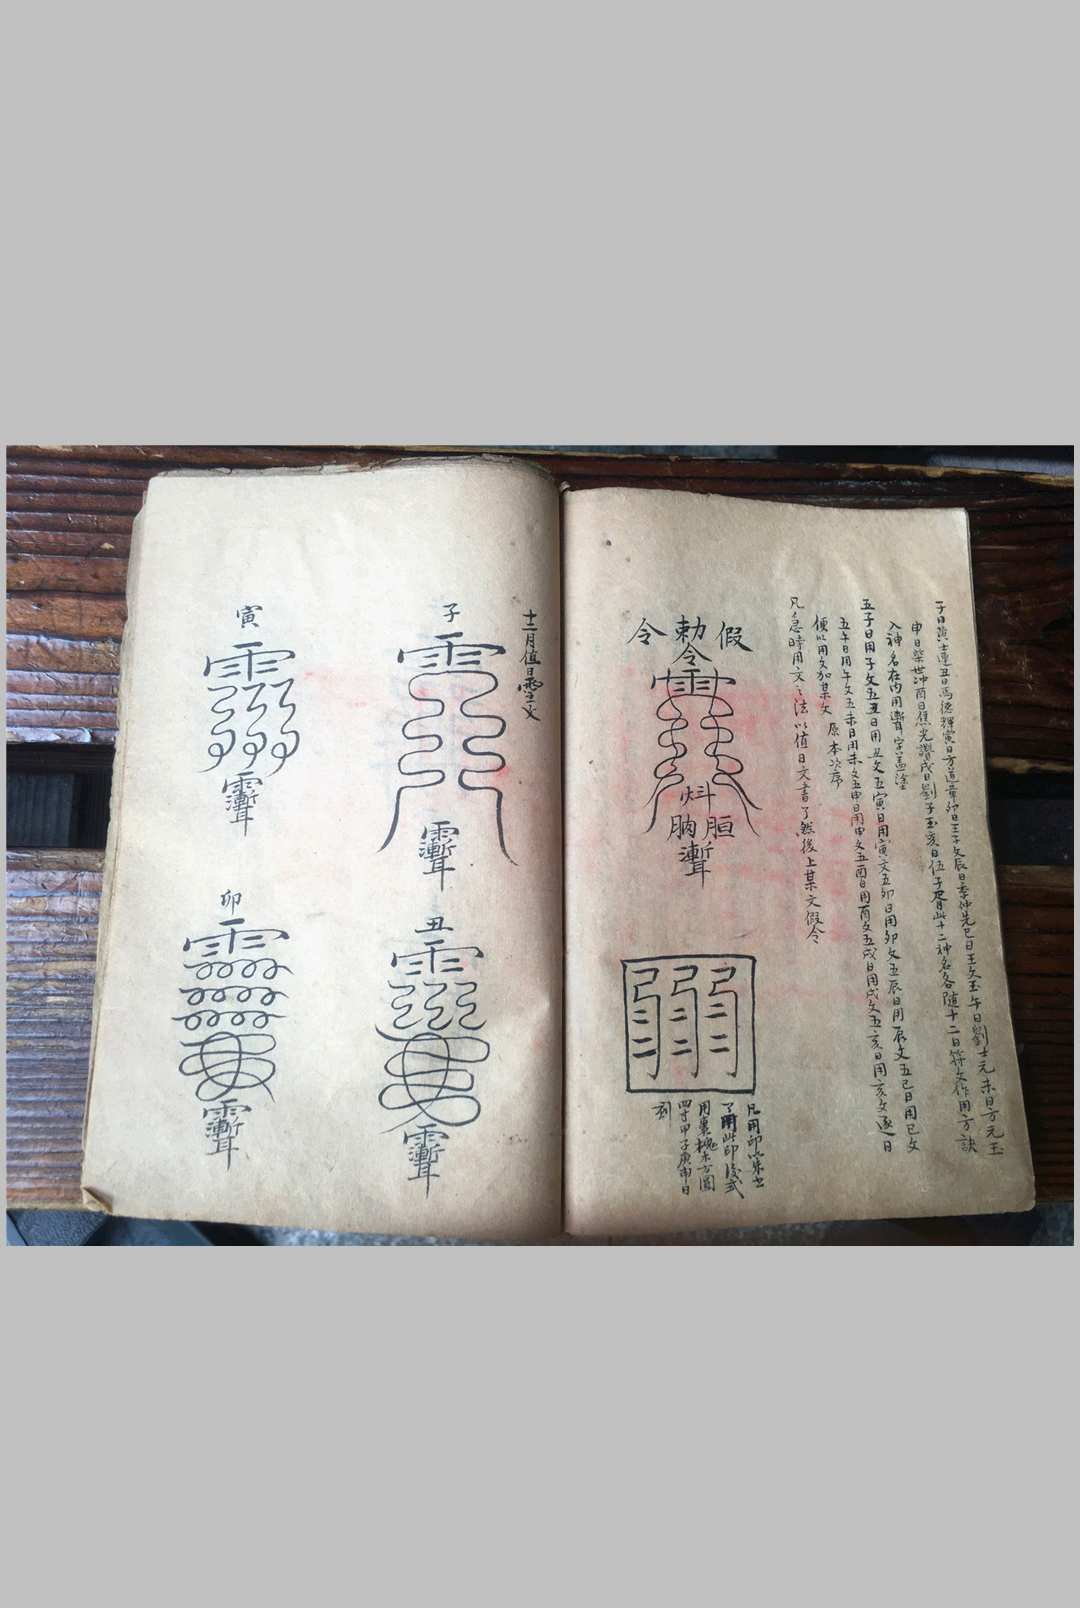 子日黄士蓮丑日馬德輝寅日方道章卯日王子文辰日季仲先巳日王文玉午日劉士元未日方元玉
申日柴世冲酉日焦光讚戌日劉子玉亥日伍子胥此十二神名各隨十二日符文作用方訣
入神名在内用聻字盖塗
五子日用子文五丑日用丑文五寅日用寅文五卯日用卯文五辰日用辰文五巳日用巳文
五午日用午文五未日用未文五申日用申文五酉日用酉文五戌日用戌文五亥日用亥文逐日
便以用文加某文 原本次序
凡急時用文之法以值日文書了然後上某文假令
假
勅令
令
凡用印以朱書
了用此印後式
用裏槐木方圓
四寸甲子庚申日
刻
十二月值日
子
丑
寅
卯